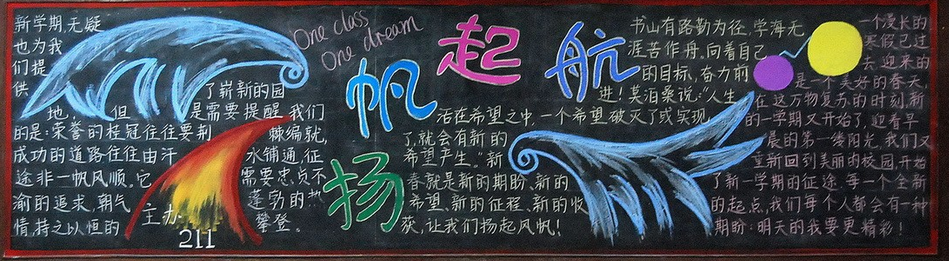 新学期,无疑
也为我
们提
供
了崭新的园
地,但是需要提醒我们
的是:荣誉的桂冠往往要荆棘编就,
成功的道路往往由汗水铺通,征
途非一帆风顺。它需要忠贞不
渝的追求,朝气蓬勃的热
情,持之以恒的攀登。
主办
211
One class
One dream
扬帆起航
书山有路勤为径,学海无
涯苦作舟。向着自己
的目标,奋力前
进!莫泊桑说:“人生
活在希望之中,一个希望破灭了或实现
了,就会有新的
希望产生。”新
春就是新的期盼、新的
希望、新的征程、新的收
获,让我们扬起风帆!
一个漫长的
寒假已过
去,迎来的
是一个美好的春天,
在这万物复苏的时刻,新
的一学期又开始了,迎着早
晨的第一缕阳光,我们又
重新回到美丽的校园,开始
了新一学期的征途,每一个全新
的起点,我们每个人都会有一种
期盼:明天的我要更精彩!